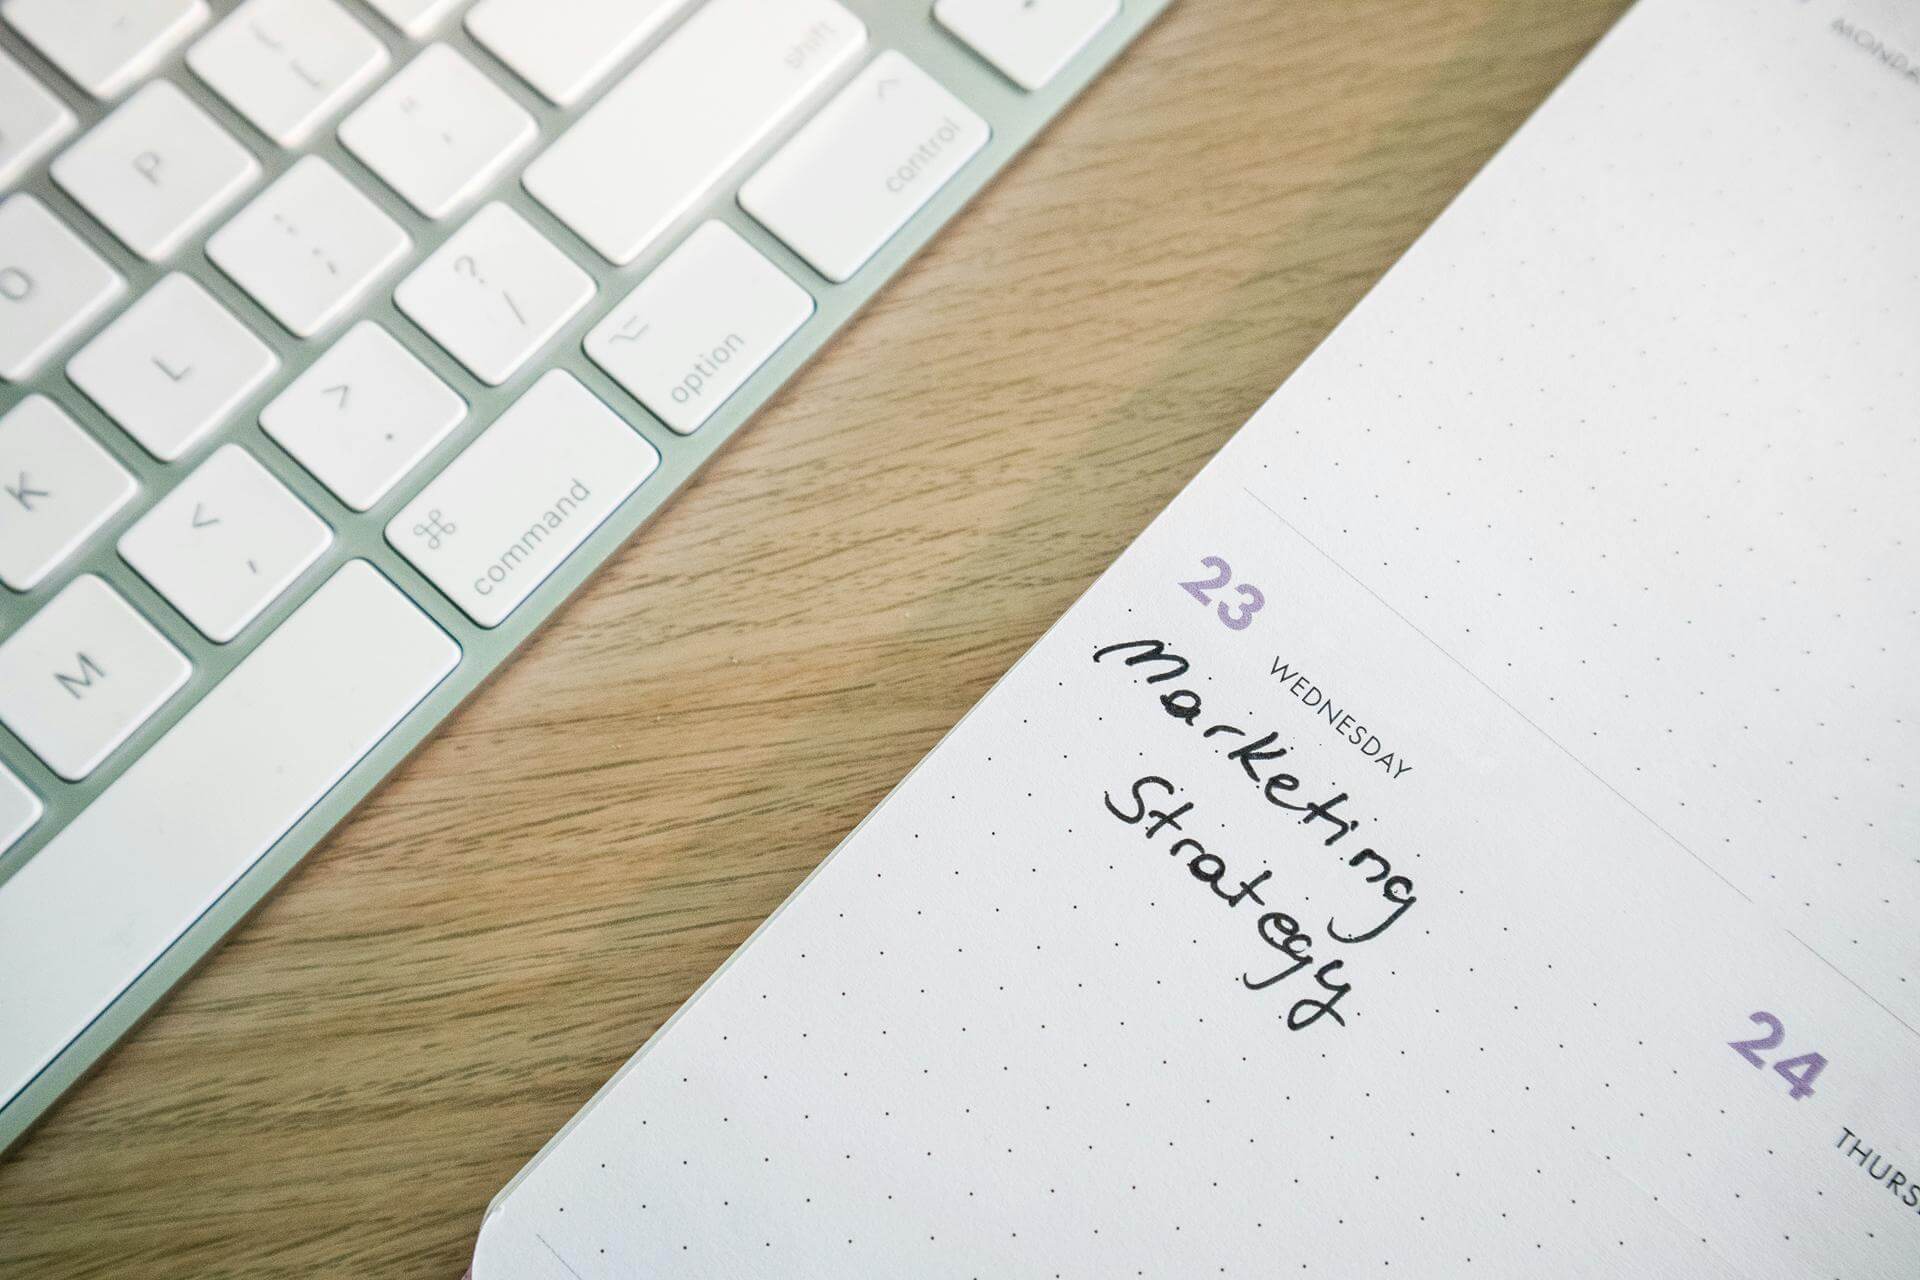 shift
control
option
command
P
O
L
K
M
? /
> .
< ,
: ;
" '
MONDA
23
WEDNESDAY
Marketing
Strategy
24
THURS